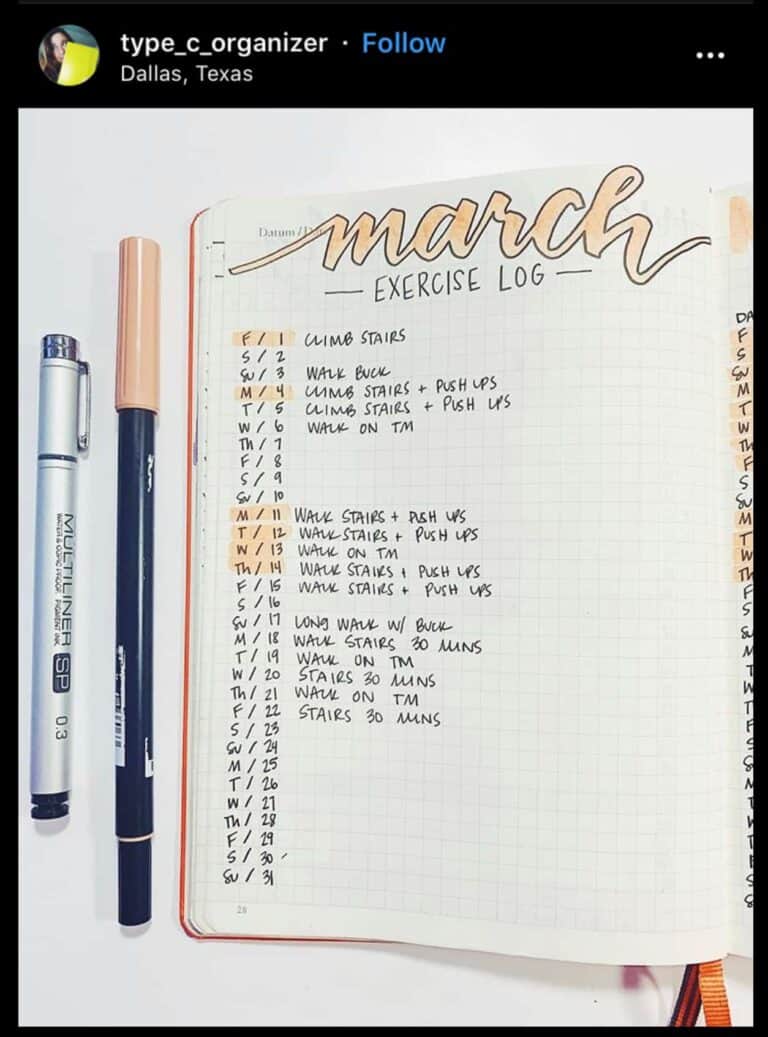 type_c_organizer · Follow
Dallas, Texas
Datum /
march
— EXERCISE LOG —
F / 1 CLIMB STAIRS
S / 2
SU / 3 WALK BUCK
M / 4 CLIMB STAIRS + PUSH UPS
T / 5 CLIMB STAIRS + PUSH UPS
W / 6 WALK ON TM
TH / 7
F / 8
S / 9
SU / 10
M / 11 WALK STAIRS + PUSH UPS
T / 12 WALK STAIRS + PUSH UPS
W / 13 WALK ON TM
TH / 14 WALK STAIRS + PUSH UPS
F / 15 WALK STAIRS + PUSH UPS
S / 16
SU / 17 LONG WALK W/ BUCK
M / 18 WALK STAIRS 30 MINS
T / 19 WALK ON TM
W / 20 STAIRS 30 MINS
TH / 21 WALK ON TM
F / 22 STAIRS 30 MINS
S / 23
SU / 24
M / 25
T / 26
W / 27
TH / 28
F / 29
S / 30
SU / 31
28
MULTILINER SP 0.3
DA
F
S
SU
M
T
W
TH
F
S
SU
M
T
W
TH
F
S
SU
M
T
W
T
F
S
S
M
T
W
T
F
S
S